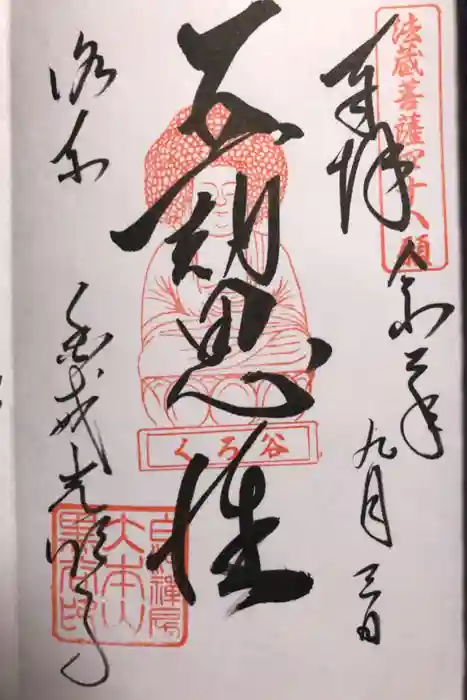 法蔵菩薩四十八願
奉拝
令和二年九月三日
五劫思惟
くろ谷
洛東
金戒光明寺
大本山